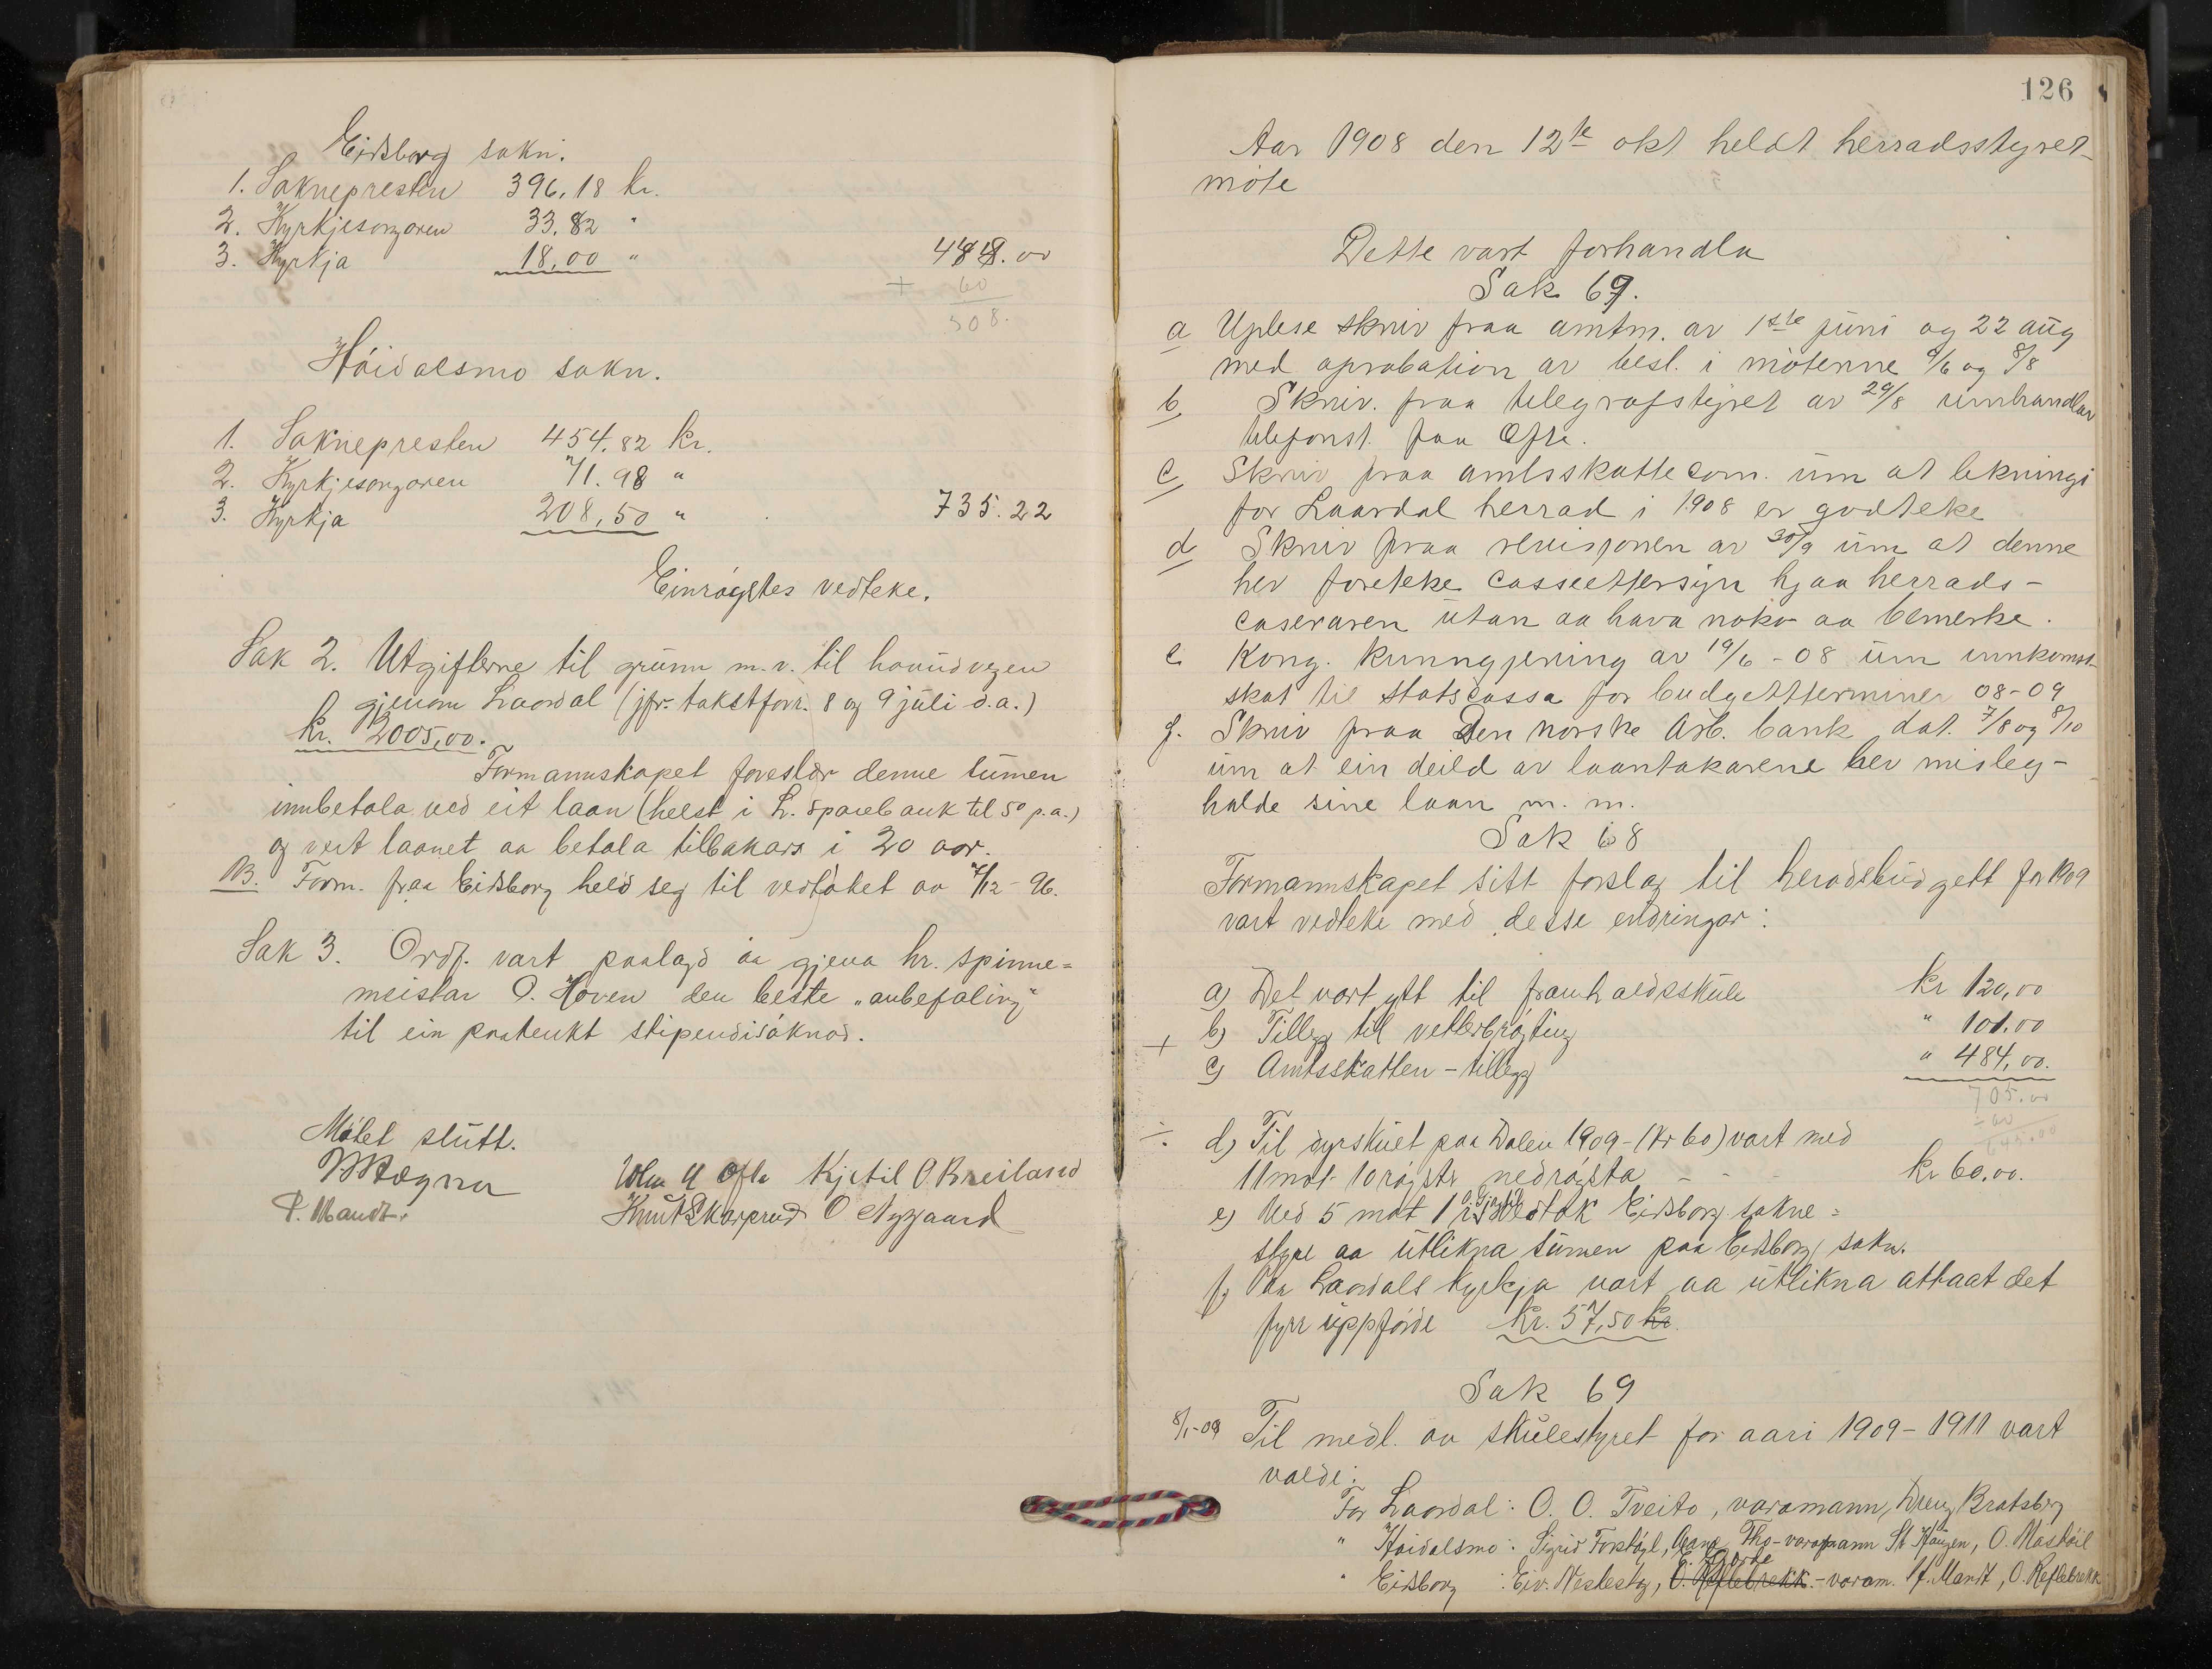 Eidsborg sokn.
1. Soknepresten 396,18 kr.
2. Kyrkjesongaren 33.82 "
3. Kyrkja 18,00 " 448.00
+ 60
508.
Höidalsmo sokn.
1. Soknepresten 454.82 kr.
2. Kyrkjesongaren 71.98 "
3. Kyrkja 208,50 " 735.22
Einröystes vedteke.
Sak 2. Utgifterne til grunn m.v. til hovudvegen
gjenom Laardal (jfr. takstforr. 8 og 9 juli d.a.)
kr. 2005,00.
Formannskapet foreslær denne sumen
innbetala ved eit laan (helst i L. sparebank til 5% p.a.)
og vert laanet aa betala tilbakars i 20 aar.
NB. Form. fraa Eidsborg held seg til vedtaket av 7/12-96.
Sak 3. Ordf. vart paalagd aa gjeva hr. spinne=
meistar O. Hoven den beste "anbefaling"
til ein paatenkt stipendisöknad.
Mötet slutt.
P. Mandt. Knut Skarprud O Nygaard
Kjetil O Breiland
126
Aar 1908 den 12te okt heldt herradsstyret
möte
Dette vart forhandla
Sak 67.
a Uplese skriv fraa amtm. av 1ste juni og 22 aug
med aprobation av besl. i möterne 9/6 og 8/8
b, Skriv. fraa telegrafstyret av 29/8 umhandlar
telefonst. paa Ofte.
c, Skriv fraa amtsskattecom. um at likningi
for Laardal herrad i 1908 er godteke
d Skriv fraa revisjonen av 30/9 um at denne
hev foreteke casseettersyn hjaa herrads-
caseraren utan aa hava noko aa bemerke.
e. Kong. kunngjering av 19/6-08 um innkomst-
skat til statscassa for budgettterminen 08-09
f. Skriv fraa Den norske Arb. bank dat. 7/8 og 8/10
um at ein deild av laantakarene hev misleg-
halde sine laan m. m.
Sak 68
Formannskapet sitt forslag til heradsbudgett for 1909
vart vedteke med desse endringar:
a) Det vart ytt til framhaldsskule kr 120,00
+ b) Tillegg til vetterbröyting " 101.00
c) Amtsskatten - tillegg " 484,00.
705.00
- 60
645.00
÷ d) Til dyrskuet paa Dalen 1909 - (kr 60) vart med
11 mot 10 röyster nedröysta - - kr 60.00.
e) Ved 5 mot 1 vedtok Eidsborg sokne=
styre aa utlikna sumen paa Eidsborg sokn.
f, Paa Laardals kyrkja vart aa utlikna attaat det
fyrr uppförde kr. 57,50 kr.
Sak 69
8/1-09 Til medl. av skulestyret for aari 1909-1911 vart
valde:
For Laardal: O. O. Tveito, varamann, Dreng Bratsberg
" Höidalsmo: Sigrid Forstöyl, Tho - varamann St. Haugen, O. Mostöil
E. Garde
" Eidsborg: Eiv. Nestestog, O. Reflebrekk - varam. Mandt, O. Reflebrekk